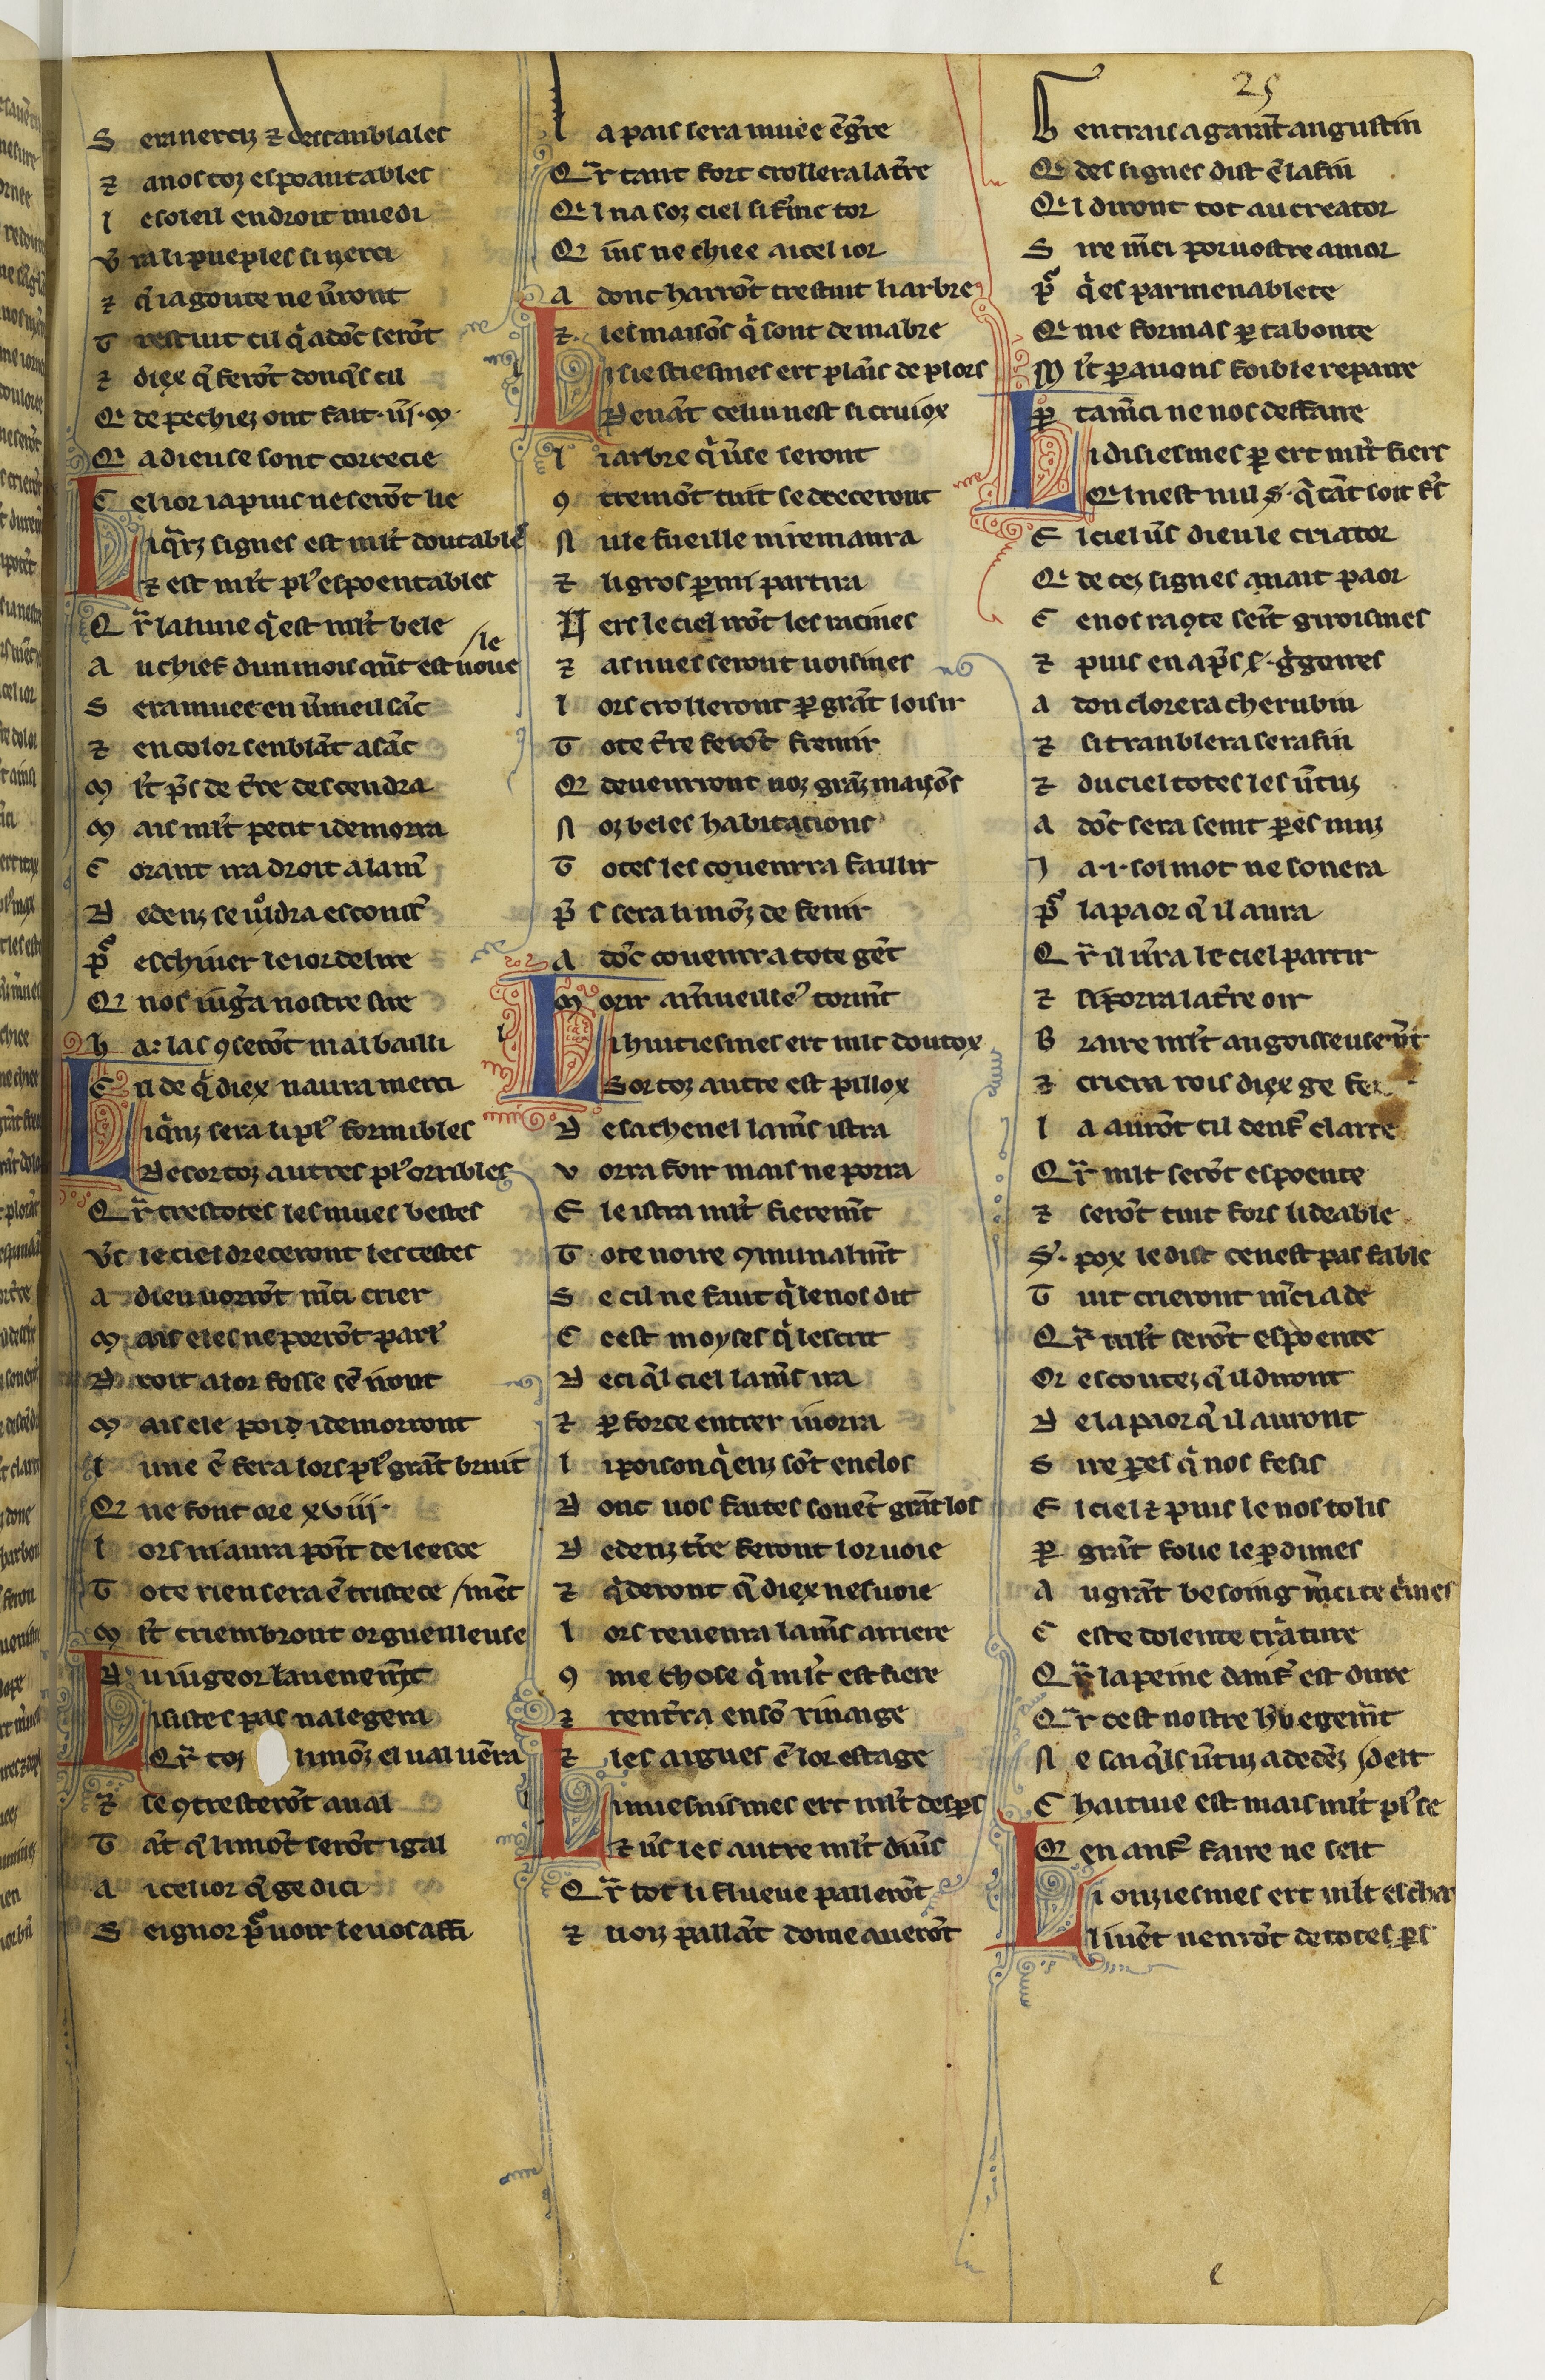 25
S era nercis ⁊ descanblables
⁊ a nos toz espoantables
l e soleil en droit miedi
v̾ra li pueples si nerci
⁊ q̃ ia goute ne ũront
T restuit cil q̇ adõc serõt
⁊ diex q̃ ferõt donq̃s cil
Q̇ de pechiez ont fait .iiĩ. ꝳ.
Q̇ a dieu se sont correcie
C el ior ia puis ne serõt lie
L i q̃rz signes est ml̃t doutable
⁊ est ml̃t pl᷒ espoentables
Q̃r la lune q̇ est ml̃t bele
A u chief dun mois q̃nt est nouele
S era muee en ũmeil sãc
⁊ en color senblãt a sãc
M l̃t p̃s de t̃re descendra
M ais ml̃t petit i demorra
C orant ira droit a la m̃
D edenz se uoldra escons̃
p̃ eschiuer le ior del ire
Q̇ nos iug̃a nostre sire
h a: las ꝯ serõt mal bailli
C il de q̇ diex naura merci
L i q̇nz sera li pl᷒ formibles
De sor toz autres pl᷒ orribles
Q̃r trestotes les mues bestes
v̾s le ciel dreceront les testes
A dieu uorrõt m̃ci crier
M ais eles ne porrõt parl̃
D roit a lor fosse sẽ iront
M ais ele poi di demorront
l une ẽ fera lors pl᷒ grãt bruit
Q̇ ne font ore xviii.
l ors ni aura poĩt de leesce
T ote rien sera ẽ tristece
M l̃t criembront orgueilleusemẽt
D u iugeor lauenem̃t
L i sistes pas nalegera
Q̃r toz li mõz el ual uẽra
⁊ se ꝯtresterõt aual
T ãt q̃ li mõt serõt igal
A icel ior q̃ ge di ci
S eignor p̃ uoir le uos affi
l a pais sera muee ẽ g̃re
Q̃r tant fort crollera la t̃re
Q̇ l na soz ciel si f̃me tor
Q̇ ius ne chiee a icel ior
A donc harrõt trestuit li arbre
⁊ les maisõs q̇ sont de mabre
L i setiesmes ert plaĩs de plors
Deuãt celui nest si cruiox
l i arbre q̇ ũse seront
ꝯ tremõt tuit se dreceront
N ule fueille ni remanra
⁊ li gros p̃mi partira
V ers le ciel irõt les racines
⁊ as nues seront uoisines
l ors crolleront ꝑ grãt loisir
T ote t̃re ferõt fremir
Q̇ deuenrront noz grãz maisõs
N oz beles habitacions
T otes les couenrra faillir
p̃ s sera li mõz de fenir
A dõc couenrra tote gẽt
M orir a m̃ueille᷒ torm̃t
L i huitiesmes ert mlt doutox
Sor toz autre est pillox
D e sa chenel la m̃s istra
v orra foir mais ne porra
E le istra ml̃t fierem̃t
T ote noire ꝯmunalm̃t
S e cil ne faut q̇ le nos dit
C eest moyses q̇ lescrit
D eci q̃l ciel la m̃s ira
⁊ ꝑ force entrer i uorra
l i poison q̇ enz sõt enclos
D ont uos faites souẽt grãt los
D edenz t̃re feront lor uoie
⁊ q̇deront q̃ diex nes uoie
l ors reuenra la m̃s arriere
ꝯ me chose q̇ ml̃t est fiere
⁊ rent̃ra en sõ riuaige
⁊ les aigues ẽ lor estage
L i nuesuismes ert ml̃t desp̃s
⁊ ũs les autre ml̃t diũs
Q̃r tot li flueue pallerõt
⁊ uoiz pallãt dome auerõt
b en trais a garãt augustin
Q̇ des signes dist ẽ la fin
Q̇ l diront tot au creator
S ire m̃ci por uostre amor
p̃ q̇ es parmenablete
Q̇ me formas ꝑ ta bonte
M l̃t ꝑ auons foible repaire
ꝑ ta m̃ci ne nos deffaire
L i disiesmes ꝑ ert ml̃t fiers
Q̇ l nest nul s̃. q̇ tãt soit f̃s
E l ciel ũs dieu le criator
Q̇ de cez signes auait paor
C e nos raꝯte seĩt giroismes
⁊ puis en ap̃s s̃. g̃gores
A don clorera cherubin
⁊ si tranblera serafin
⁊ du ciel totes les ũtuz
A dõc sera seint p̃es muz
J a .i. sol mot ne sonera
p̃ la paor q̃ il aura
Q̃r il ũra le ciel partir
⁊ si porra la t̃re oir
B raire ml̃t angoisseusem̃t
⁊ criera rois diex ge
l a aurõt cil denf̃ clarte
Q̃r mlt serõt espoente
⁊ serõt tuit fors li deable
S̃. pox le dist ce nest pas fable
T uit crieront m̃ci a de
Q̃r ml̃t serõt espoente
Or escoutez q̃ il diront
D e la paor q̃ il auront
S ire p̃es q̇ nos fesis
E l ciel ⁊ puis le nos tolis
ꝑ grãt folie le ꝑdimes
A u grãt besoing m̃ci te q̃imes
C este dolente cr̃ature
Q̃r la peine danf̃ est dure
Q̃r cest nostre h̃begem̃t
N e sai q̃ls ũtuz a dedẽz
C haitiue est mais ml̃t pl᷒ se deit
Q̇ en anf̃ faire ne seit
L i onziesmes ert ml̃t eschar
li uẽt uenrõt de totes p̃s